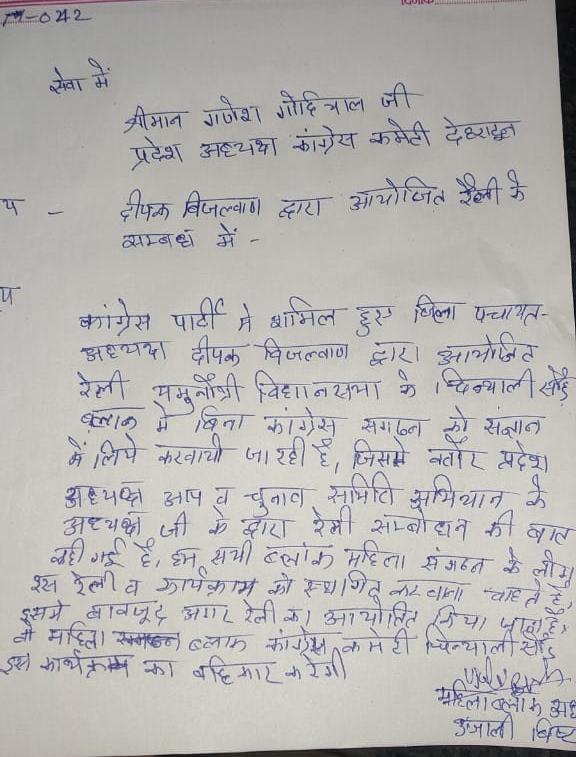 -042
दिनांक
सेवा में
श्रीमान गणेश गोदियाल जी
प्रदेश अध्यक्ष कांग्रेस कमेटी देहरादून
य - दीपक बिजल्वाण द्वारा आयोजित रैली के
सम्बधं में -
य
कांग्रेस पार्टी मे शामिल हुए जिला पंचायत-
अध्यक्ष दीपक बिजल्वाण द्वारा आयोजित
रेली यमुनौत्री विधानसभा के चिन्याली सौड़
ब्लाक मे बिना कांग्रेस सगठन को संज्ञान
में लिये करवायी जा रही है, जिसमे बतौर प्रदेश
अध्यक्ष आप व चुनाव समिति अभियान के
अध्यक्ष जी के द्वारा रेली सम्बोधन की बात
कही गई है, हम सभी ब्लॉक महिला संगठन के लोग
इस रेली व कार्यक्रम को स्थागित करवाना चाहते है,
इसमे बावजूद अगर रेली का आयोजित किया जाता है,
तो महिला ब्लाक कांग्रेस कमेटी चिन्याली सौड़
इस कार्यक्रम का बहिष्कार करेगी
महिला ब्लाक अध
अंजाली बिष्ट